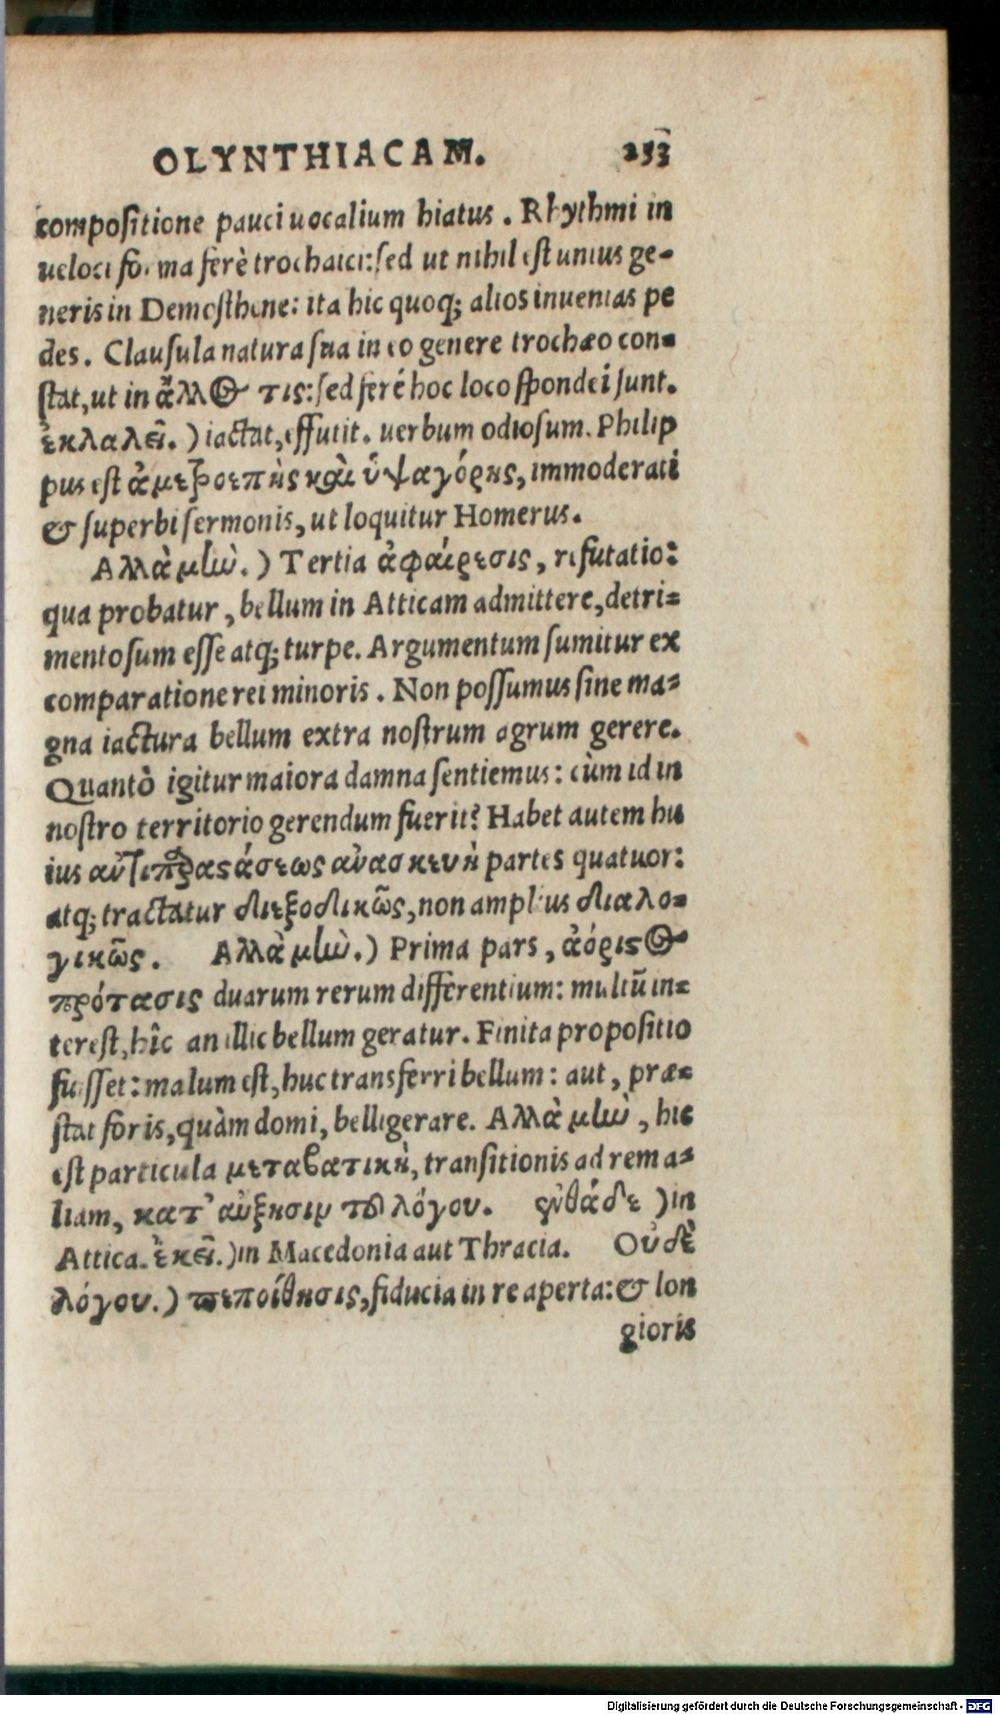 OLYNTHIACAM. 253
compositione pauci uocalium hiatus. Rhythmi in
ueloci forma ferè trochaici: sed ut nihil est unius ge-
neris in Demosthene: ita hic quoq; alios inuenias pe
des. Clausula natura sua in eo genere trochæo con-
stat, ut in ἄλλος τις: sed feré hoc loco spondei sunt.
ἐκλαλεῖ.) iactat, effutit. uerbum odiosum. Philip
pus est ἀμετροεπὴς καὶ ὑψαγόρης, immoderati
& superbi sermonis, ut loquitur Homerus.
Αλλὰ μὴν.) Tertia ἀφαίρεσις, refutatio:
qua probatur, bellum in Atticam admittere, detri-
mentosum esse atq; turpe. Argumentum sumitur ex
comparatione rei minoris. Non possumus sine ma-
gna iactura bellum extra nostrum agrum gerere.
Quantò igitur maiora damna sentiemus: cùm id in
nostro territorio gerendum fuerit? Habet autem hu
ius ἀντιπαραστάσεως ἀνασκευὴ partes quatuor:
atq; tractatur διεξοδικῶς, non amplius διαλο-
γικῶς. Αλλὰ μὴν.) Prima pars, ἀόριστος
πρότασις duarum rerum differentium: multū in-
terest, hîc an illic bellum geratur. Finita propositio
fuisset: malum est, huc transferri bellum: aut, præ-
stat foris, quàm domi, belligerare. Αλλὰ μὴν, hic
est particula μεταβατικὴ, transitionis ad rem a-
liam, κατ' αὔξησιν τοῦ λόγου. ἐνθάδε) in
Attica. ἐκεῖ.) in Macedonia aut Thracia. Οὐδὲ
λόγου.) πεποίθησις, fiducia in re aperta: & lon
gioris
Digitalisierung gefördert durch die Deutsche Forschungsgemeinschaft - DFG